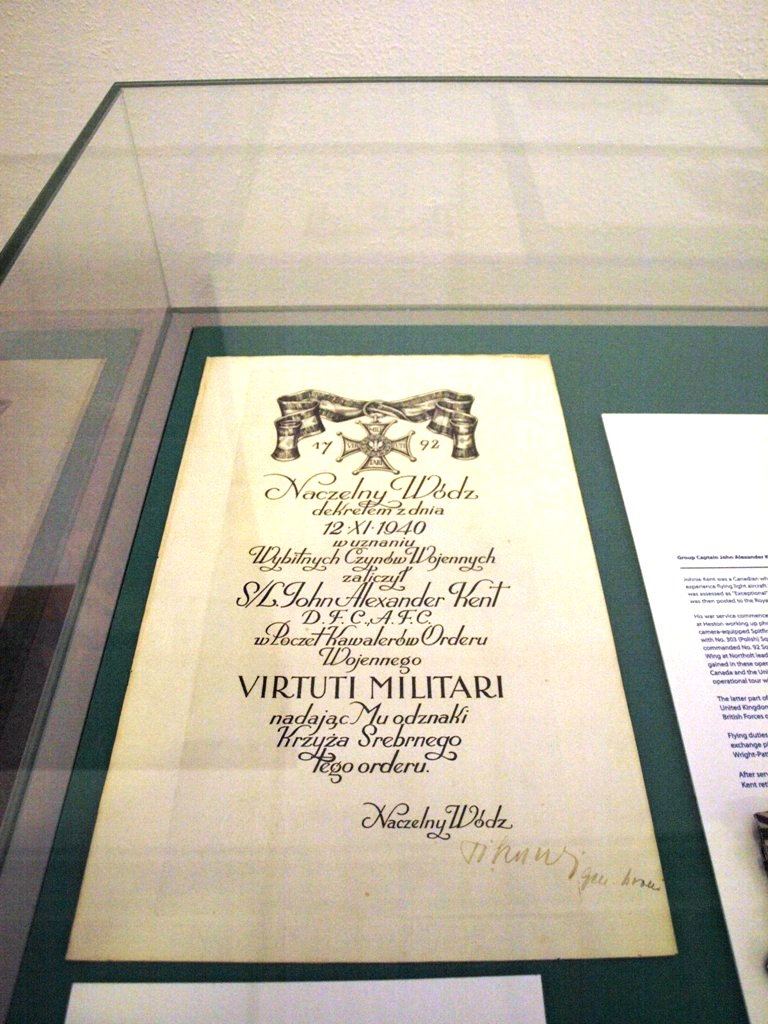 17 92
Naczelny Wódz
dekretem z dnia
12·XI·1940
w uznaniu
Wybitnych Czynów Wojennych
zaliczył
S/L. John Alexander Kent
D.F.C., A.F.C.
w Poczet Kawalerów Orderu
Wojennego
VIRTUTI MILITARI
nadając Mu odznaki
Krzyża Srebrnego
tego orderu.
Naczelny Wódz
Group Captain John Alexander K
Johnie Kent was a Canadian wh
experience flying light aircraft
was assessed as "Exceptional"
was then posted to the Roya
His war service commence
at Heston working up pho
camera-equipped Spitfir
with No. 303 (Polish) Sq
commanded No. 92 Sq
Wing at Northolt lead
gained in these oper
Canada and the Uni
operational tour w
The latter part of
United Kingdom
British Forces o
Flying duties
exchange p
Wright-Pat
After serv
Kent ret